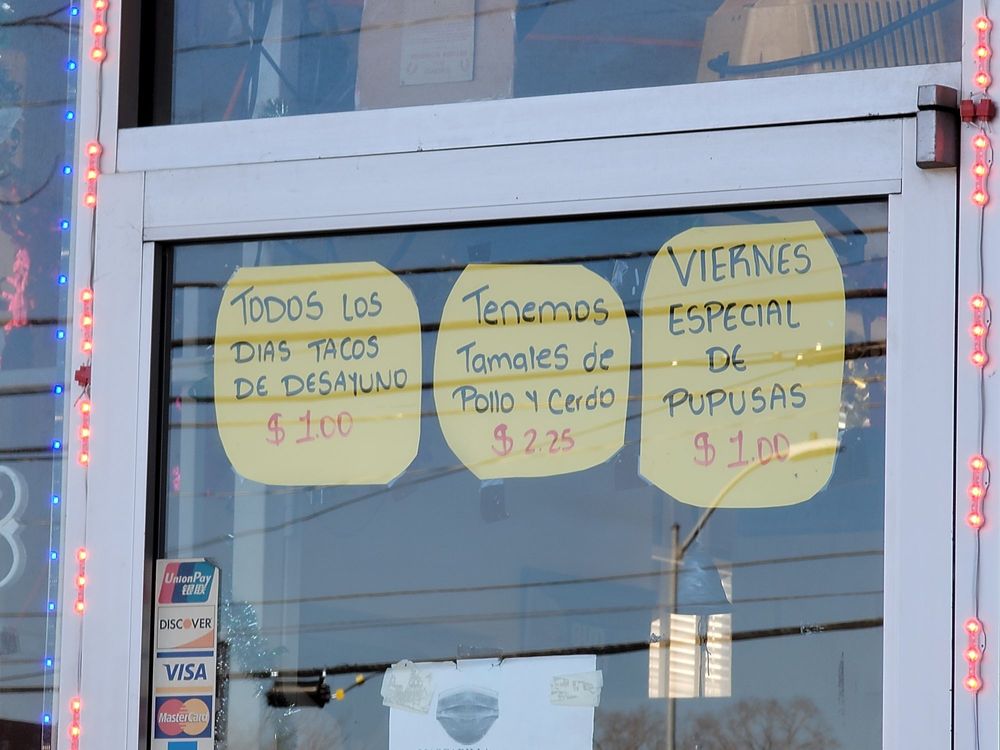 TODOS LOS
DIAS TACOS
DE DESAYUNO
$1.00
Tenemos
Tamales de
Pollo y Cerdo
$2.25
VIERNES
ESPECIAL
DE
PUPUSAS
$1.00
UnionPay
银联
DISCOVER
VISA
MasterCard